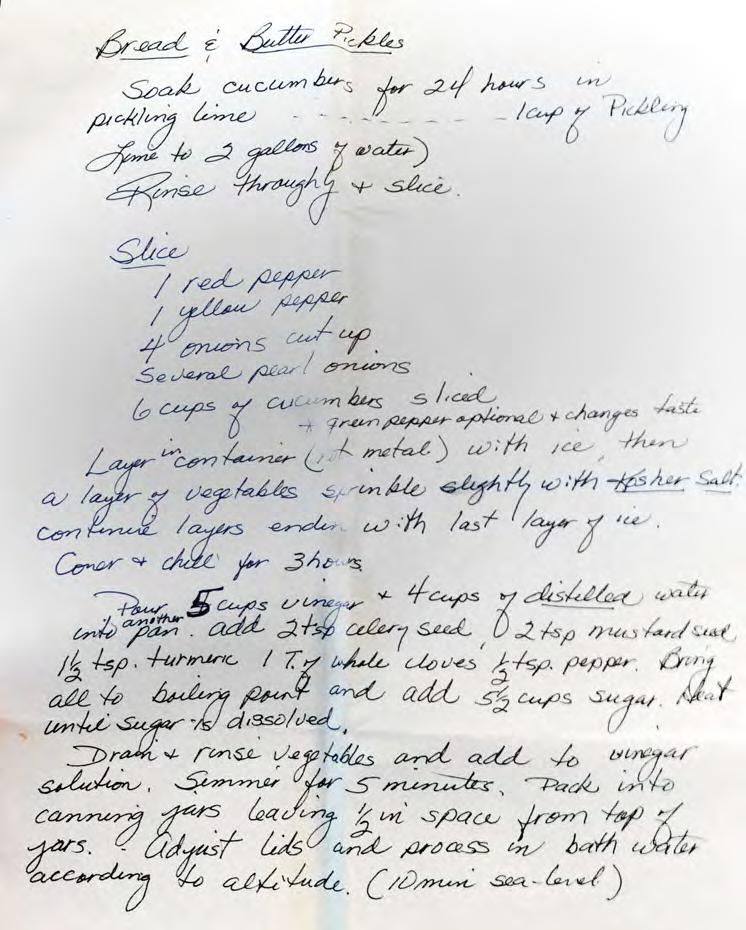 Bread & Butter Pickles
Soak cucumbers for 24 hours in
pickling lime - - - - - - - 1 cup of Pickling
Lime to 2 gallons of water)
Rinse throughly + slice.
Slice
1 red pepper
1 yellow pepper
4 onions cut up
Several pearl onions
6 cups of cucumbers sliced
+ green pepper optional + changes taste
Layer in container (not metal) with ice, then
a layer of vegetables sprinkle slightly with Kosher Salt.
continue layers endin with last layer of ice.
Cover + chill for 3 hours.
Pour 5 cups vinegar + 4 cups of distilled water
into another pan. add 2 tsp celery seed, 2 tsp mustard seed
1½ tsp. turmeric 1 T. of whole cloves ½ tsp. pepper. Bring
all to boiling point and add 5½ cups sugar. Heat
until sugar is dissolved.
Drain + rinse vegetables and add to vinegar
solution. Simmer for 5 minutes. Pack into
canning jars leaving ½ in space from top of
jars. Adjust lids and process in bath water
according to altitude. (10 min sea-level)